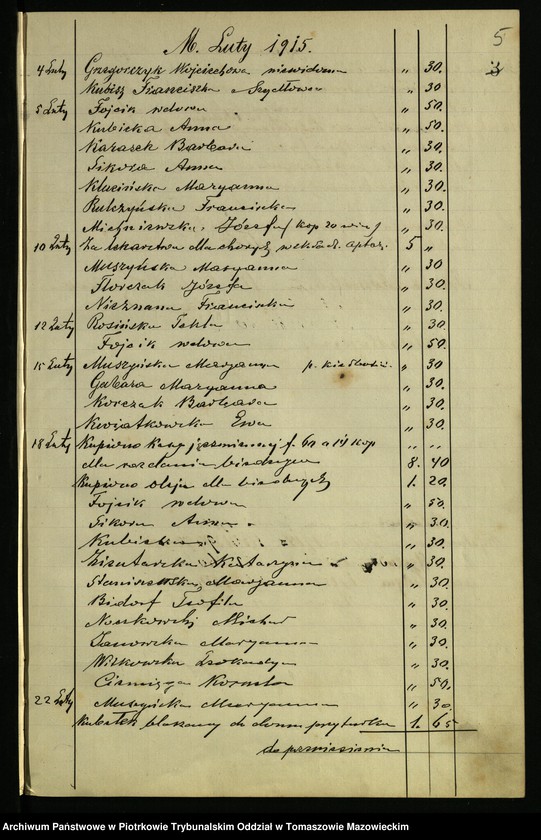 5
M. Luty 1915.
3
4 Luty Grzegorczyk Wojciechowa niewidoma " 30.
Kubisz Franciszka z Szydłowa " 30
5 Luty Fojcik wdowa " 50.
Kubicka Anna " 50.
Karasek Barbara " 30.
Sikora Anna " 30.
Klucińska Maryanna " 30.
Rulczyńska Franciszka " 30.
Józefa " 30.
10 Luty Za lekarstwa dla chorych 5 "
Muszyńska Maryanna " 30
Florczak Józefa " 30.
Nieznana Franciszka " 30.
12 Luty Rosińska Tekla " 30.
Fojcik wdowa " 50.
15 Luty Muszyńska Maryanna " 30
Gabara Maryanna " 30.
Korczak Barbara " 30.
Kwiatkowska Ewa " 30.
18 Luty Kupiono kaszy jęczmiennej f. 60 a 14 kop " "
dla rozdania biednym 8. 40
Kupiono oleju dla biednych 1. 20.
Fojcik wdowa " 50.
Sikora Anna " 30.
" 30.
Katarzyna " 30.
Staniszewska Maryanna " 30
Teofila " 30.
Noskowski Michał " 30.
Janowska Maryanna " 30.
Wilkowska " 30.
" 50.
22 Luty Muszyńska Maryanna " 30.
Kubełek blaszany do domu przytułku 1. 65
do przeniesienia
Archiwum Państwowe w Piotrkowie Trybunalskim Oddział w Tomaszowie Mazowieckim